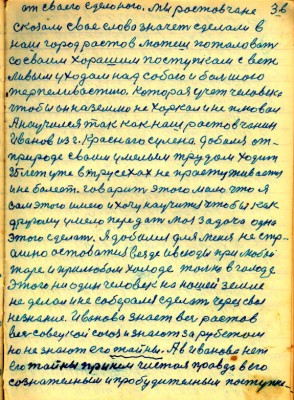 от своего сделоного. Мы ростовчане 36
сказали свое слово значет сделали в
наш город ростов можеш пожаловат
со своим хорошим поступкам с веж
ливым уходам над собою и болшого
терпеливостию. Которая учет человека
чтобы он на землю не харкал и не плювал
А научился так как наш ростовчанин
Иванов из г. Красного сулена добился от
природе своим умелым трудом ходит
35 лет уже в трусехах не простуживаетя
и не болеет. говарит этого мало что я
сам этого имею и хочу научит чтобы как
другому умело передат моя задача одна
этого сделат. Я добился для меня не стр-
ашно оставатся везде и всюди при любой
жаре и при любом холоде толко в голоде
Этого ни один человек на нашей земле
не делал и не собераля сделат через свое
незнание. Иванова знает вес ростов
вес советский союз и знают за рубежом
но не знают его тайны. А в Иванове нет
его тайны прямем чистая правда в его
сознателным и пробудителным поступки-